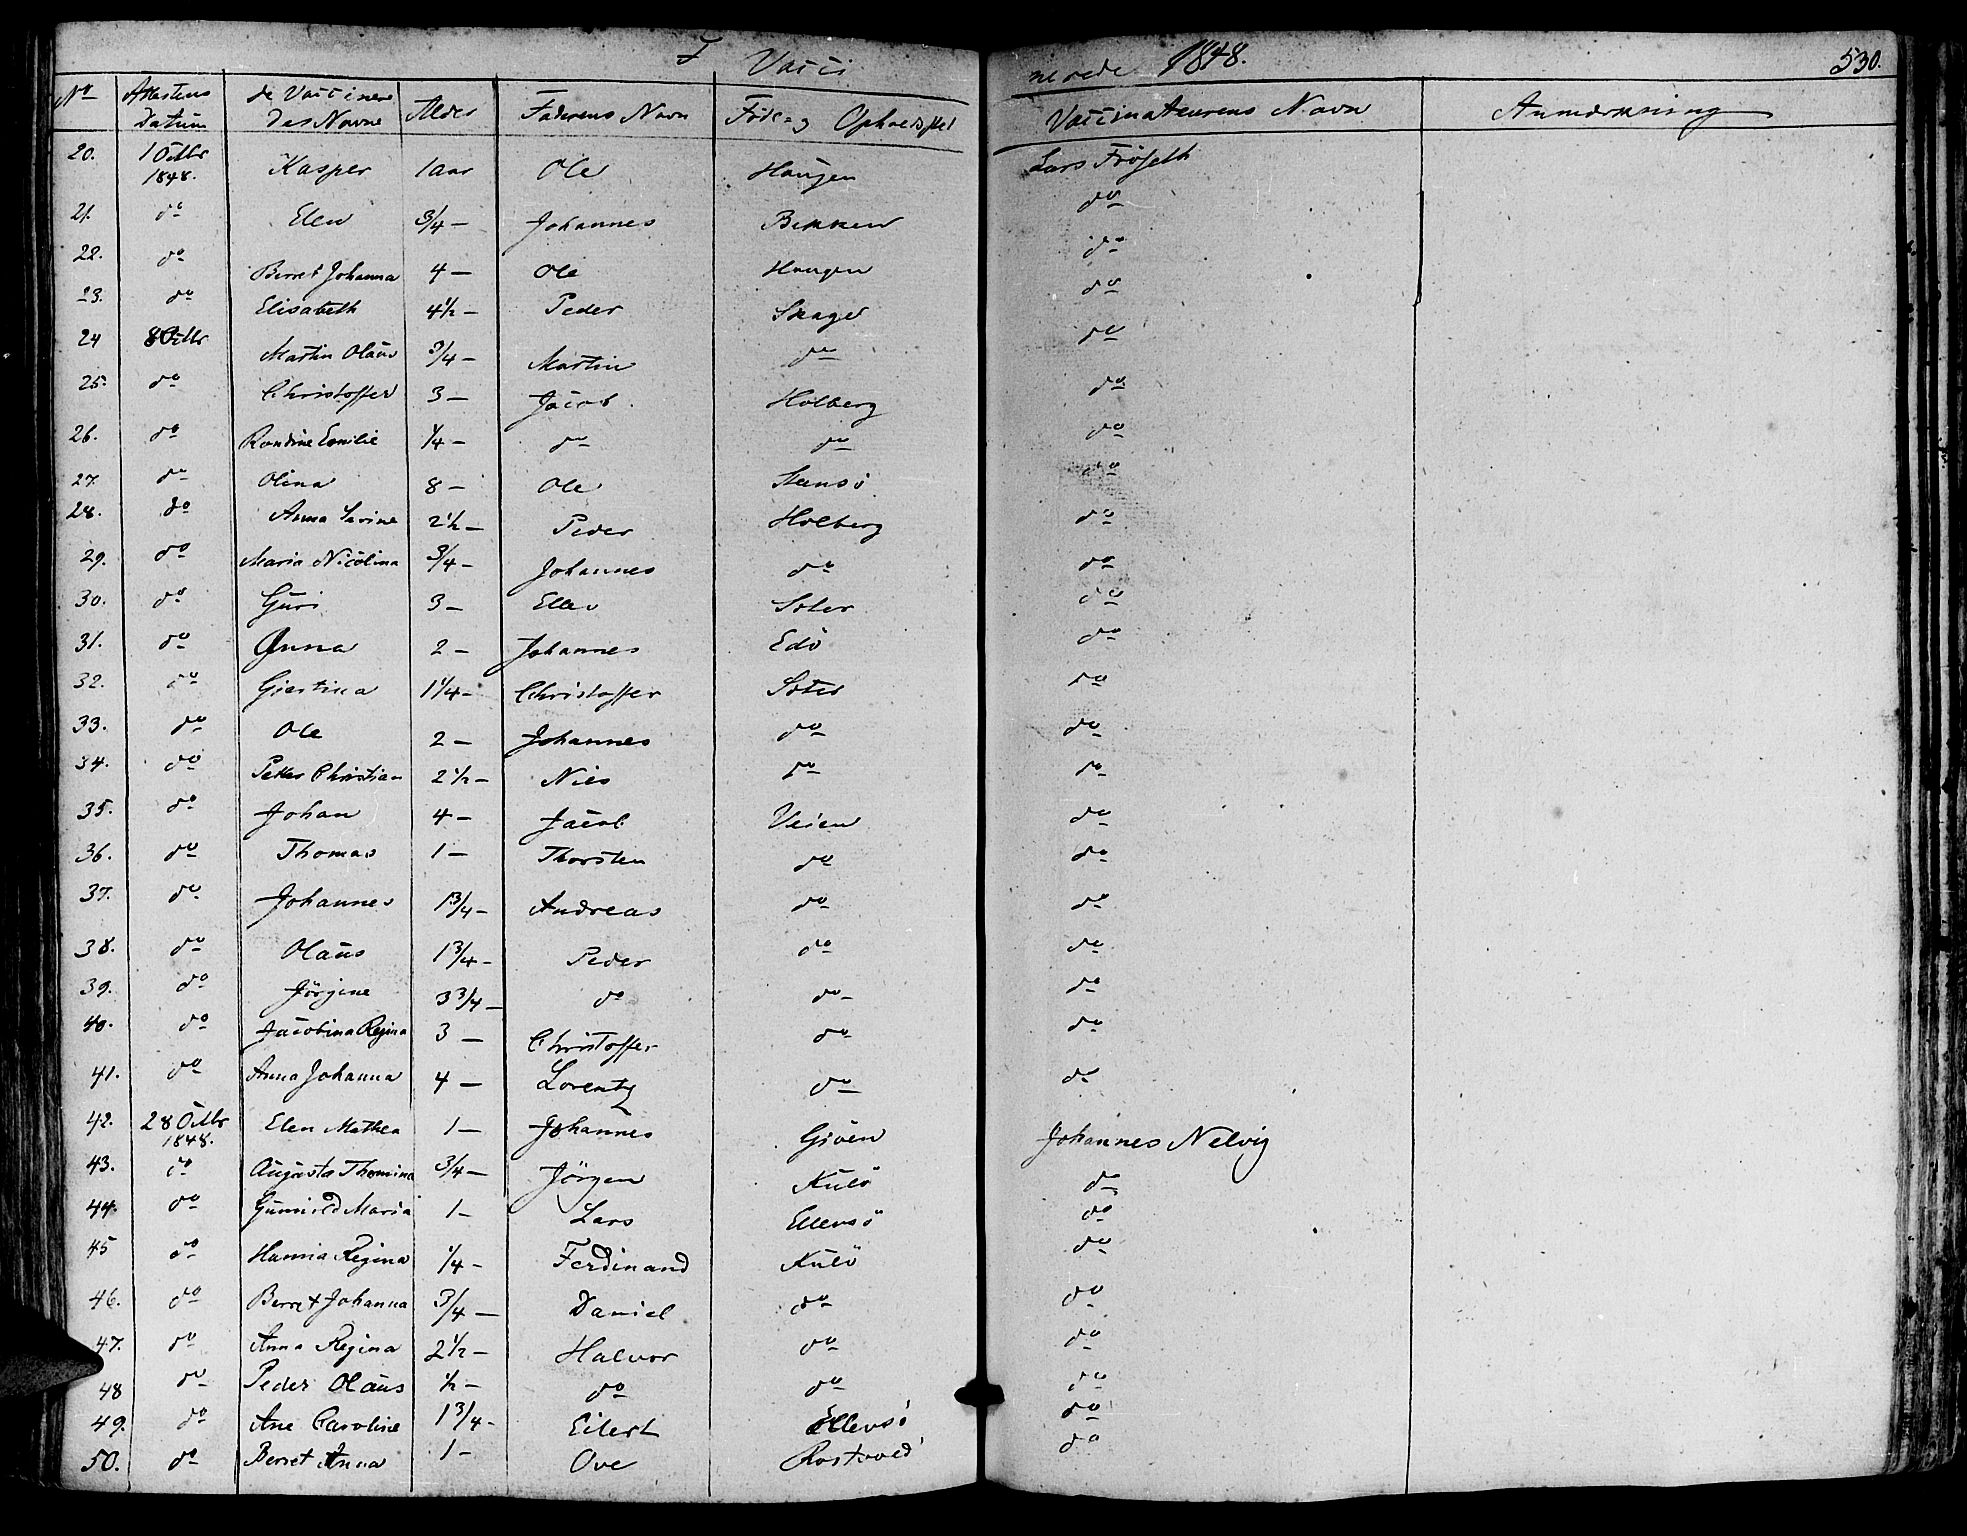 I Vacci nerede 1848. 530.
No Attestens Datum de Vaccineredes Navne Alder Faderens Navn Føde- og Opholdssted Vaccinateurens Navn Anmærkning
20. 1 Octbr 1848. Kasper 1 aar Ole Haugen Lars Fröseth
21. do Elen 3/4 — Johannes Bekken do
22. do Berret Johanna 4 — Ole Haugen do
23. do Elisabeth 4 1/2 — Peder Skager do
24 8 Octbr Martin Olaus 3/4 — Martin do do
25. do Christoffer 3 — Jacob Holberg do
26. do Randine Emilie 1/4 — do do do
27. do Olina 8 — Ole Stensö do
28. do Anna Sarine 2 1/2 — Peder Holberg do
29. do Maria Nicolina 3/4 — Johannes do do
30. do Guri 3 — Ellev Soter do
31. do Anna 2 — Johannes Edö do
32. do Gjertina 1 1/4 — Christoffer Soter do
33. do Ole 2 — Johannes do do
34. do Petter Christian 2 1/2 — Nils do do
35. do Johan 4 — Jacob Veien do
36. do Thomas 1 — Thorsten do do
37. do Johannes 1 3/4 — Andreas do do
38. do Olaus 1 3/4 — Peder do do
39. do Jörgine 3 3/4 — do do do
40. do Jacobina Regina 3 — Christoffer do do
41. do Anna Johanna 4 — Lorentz do do
42. 28 Octbr 1848. Elen Mathea 1 — Johannes Gjöen Johannes Nelvig
43. do Augusta Thomina 3/4 — Jörgen Kulö do
44. do Gunnild Maria 1 — Lars Ellensö do
45 do Hanna Regina 1/4 — Ferdinand Kulö do
46. do Berret Johanna 3/4 — Daniel do do
47. do Anna Regina 2 1/2 — Halvor do do
48 do Peder Olaus 1/2 — do do do
49. do Ane Caroline 1 3/4 — Eilert Ellensö do
50. do Berret Anna 1 — Ove do